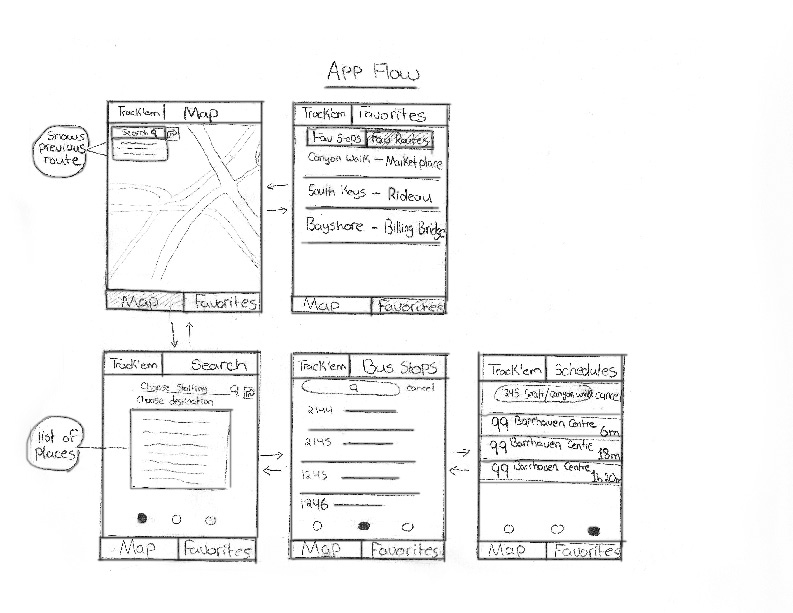 App Flow
Track'em Map
Search
Shows
previous
route
Map Favorites
Track'em Favorites
Fav Stops Fav Routes
Canyon Walk - Marketplace
South Keys - Rideau
Bayshore - Billing Bridge
Map Favorites
Track'em Search
Choose Starting
Choose destination
list of
places
Map Favorites
Track'em Bus Stops
cancel
2144
2145
1245
1246
Map Favorites
Track'em Schedules
canyon walk cancel
99 Barrhaven Centre
6m
99 Barrhaven Centre
18m
99 Barrhaven Centre
1h 20m
Map Favorites